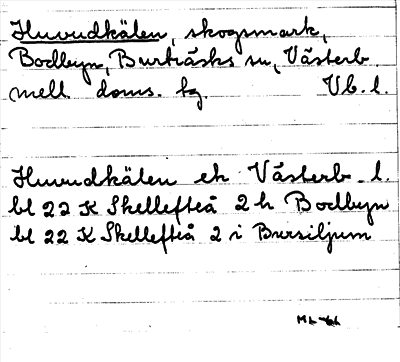 Huvudkälen, skogsmark,
Bodbyn, Burträsks sn, Västerb.
mell. doms. tg Vb. l.
Huvudkälen ek Västerb. l.
bl 22 K Skellefteå 2 h Bodbyn
bl 22 K Skellefteå 2 i Bursiljum